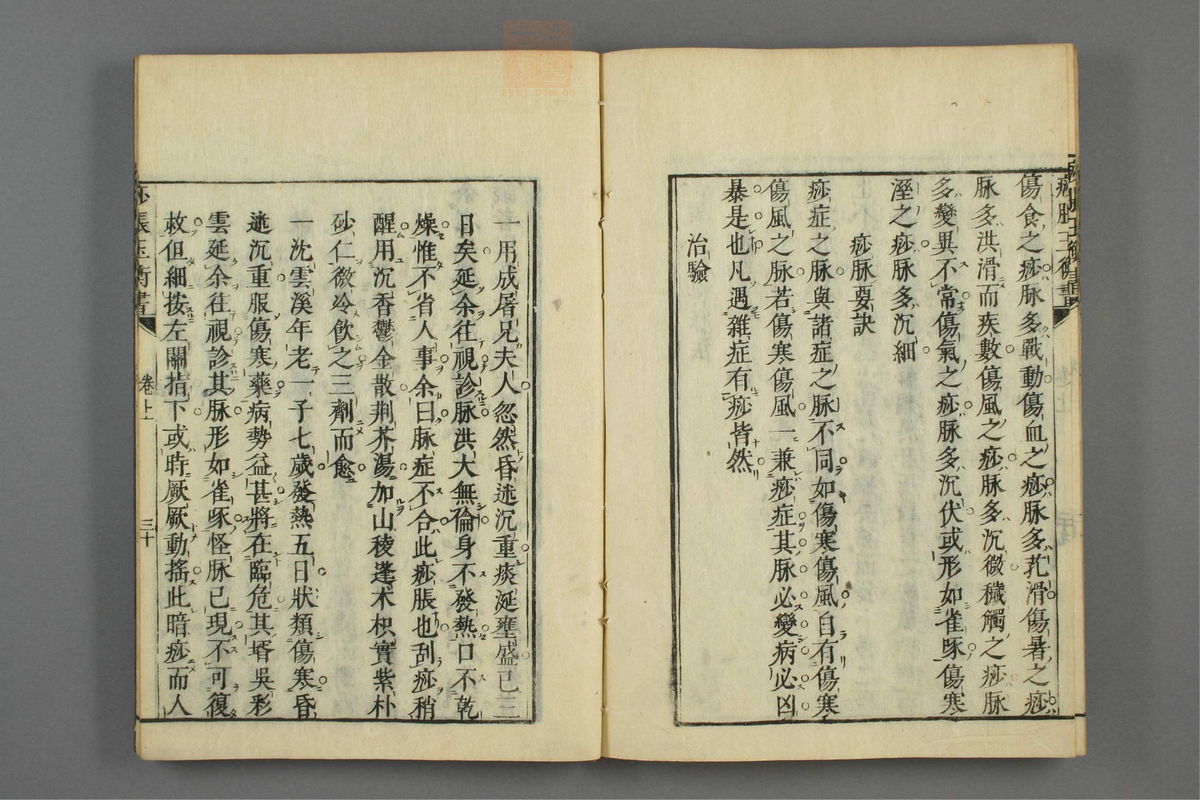 傷食之痧脉多戰動傷血之痧脉多芤滑傷暑之痧
脉多洪滑而疾數傷風之痧脉多沉微穢觸之痧脉
多變異不常傷氣之痧脉多沉伏或形如雀啄傷寒
溼之痧脉多沉細
痧脉要訣
痧症之脉與諸症之脉不同如傷寒傷風自有傷寒
傷風之脉若傷寒傷風一兼痧症其脉必變病必凶
暴是也凡遇雜症有痧皆然
治驗
一用成屠兄夫人忽然昏迷沉重痰涎壅盛已三
日矣延余往視診脉洪大無倫身不發熱口不乾
燥惟不省人事余曰脉症不合此痧脹也刮痧稍
醒用沉香鬱金散荆芥湯加山稜蓬朮枳實紫朴
砂仁微冷飲之三劑而愈
一沈雲溪年老一子七歲發熱五日狀類傷寒昏
迷沉重服傷寒藥病勢益甚將在臨危其壻吳彩
雲延余往視診其脉形如雀啄怪脉已現不可復
救但細按左關指下或時厥厥動搖此暗痧而人
痧脹玉衡書
卷上
三十